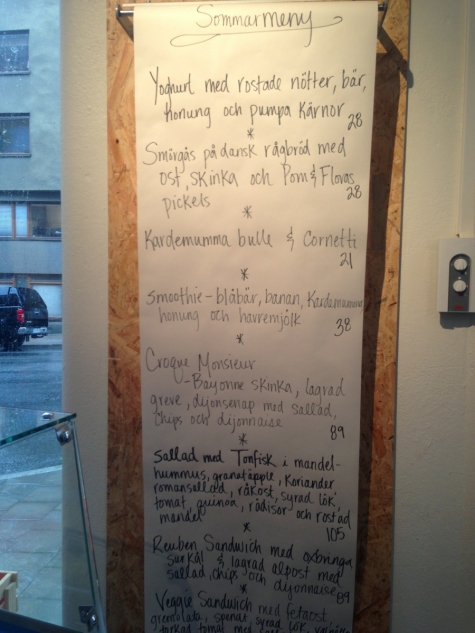 Sommarmeny
Yoghurt med rostade nötter, bär,
honung och pumpa kärnor
28
*
Smörgås på dansk rågbröd med
ost, skinka och Pom & Floras
pickels
28
*
Kardemumma bulle & Cornetti
21
*
Smoothie - blåbär, banan, Kardemumma
honung och havremjölk
38
*
Croque Monsieur
- Bayonne skinka, lagrad
greve, dijonsenap med sallad,
chips och dijonnaise
89
*
Sallad med Tonfisk i mandel-
hummus, granatäpple, koriander
romansallad, råkost, syrad lök,
tomat quinoa, rädisor och rostad
mandel
105
*
Reuben Sandwich med oxbringa
surkål & lagrad alpost med
sallad, chips och dijonnaise
89
*
Veggie Sandwich med fetaost,
gremolata, spenat, syrad lök,
torkad tomat med